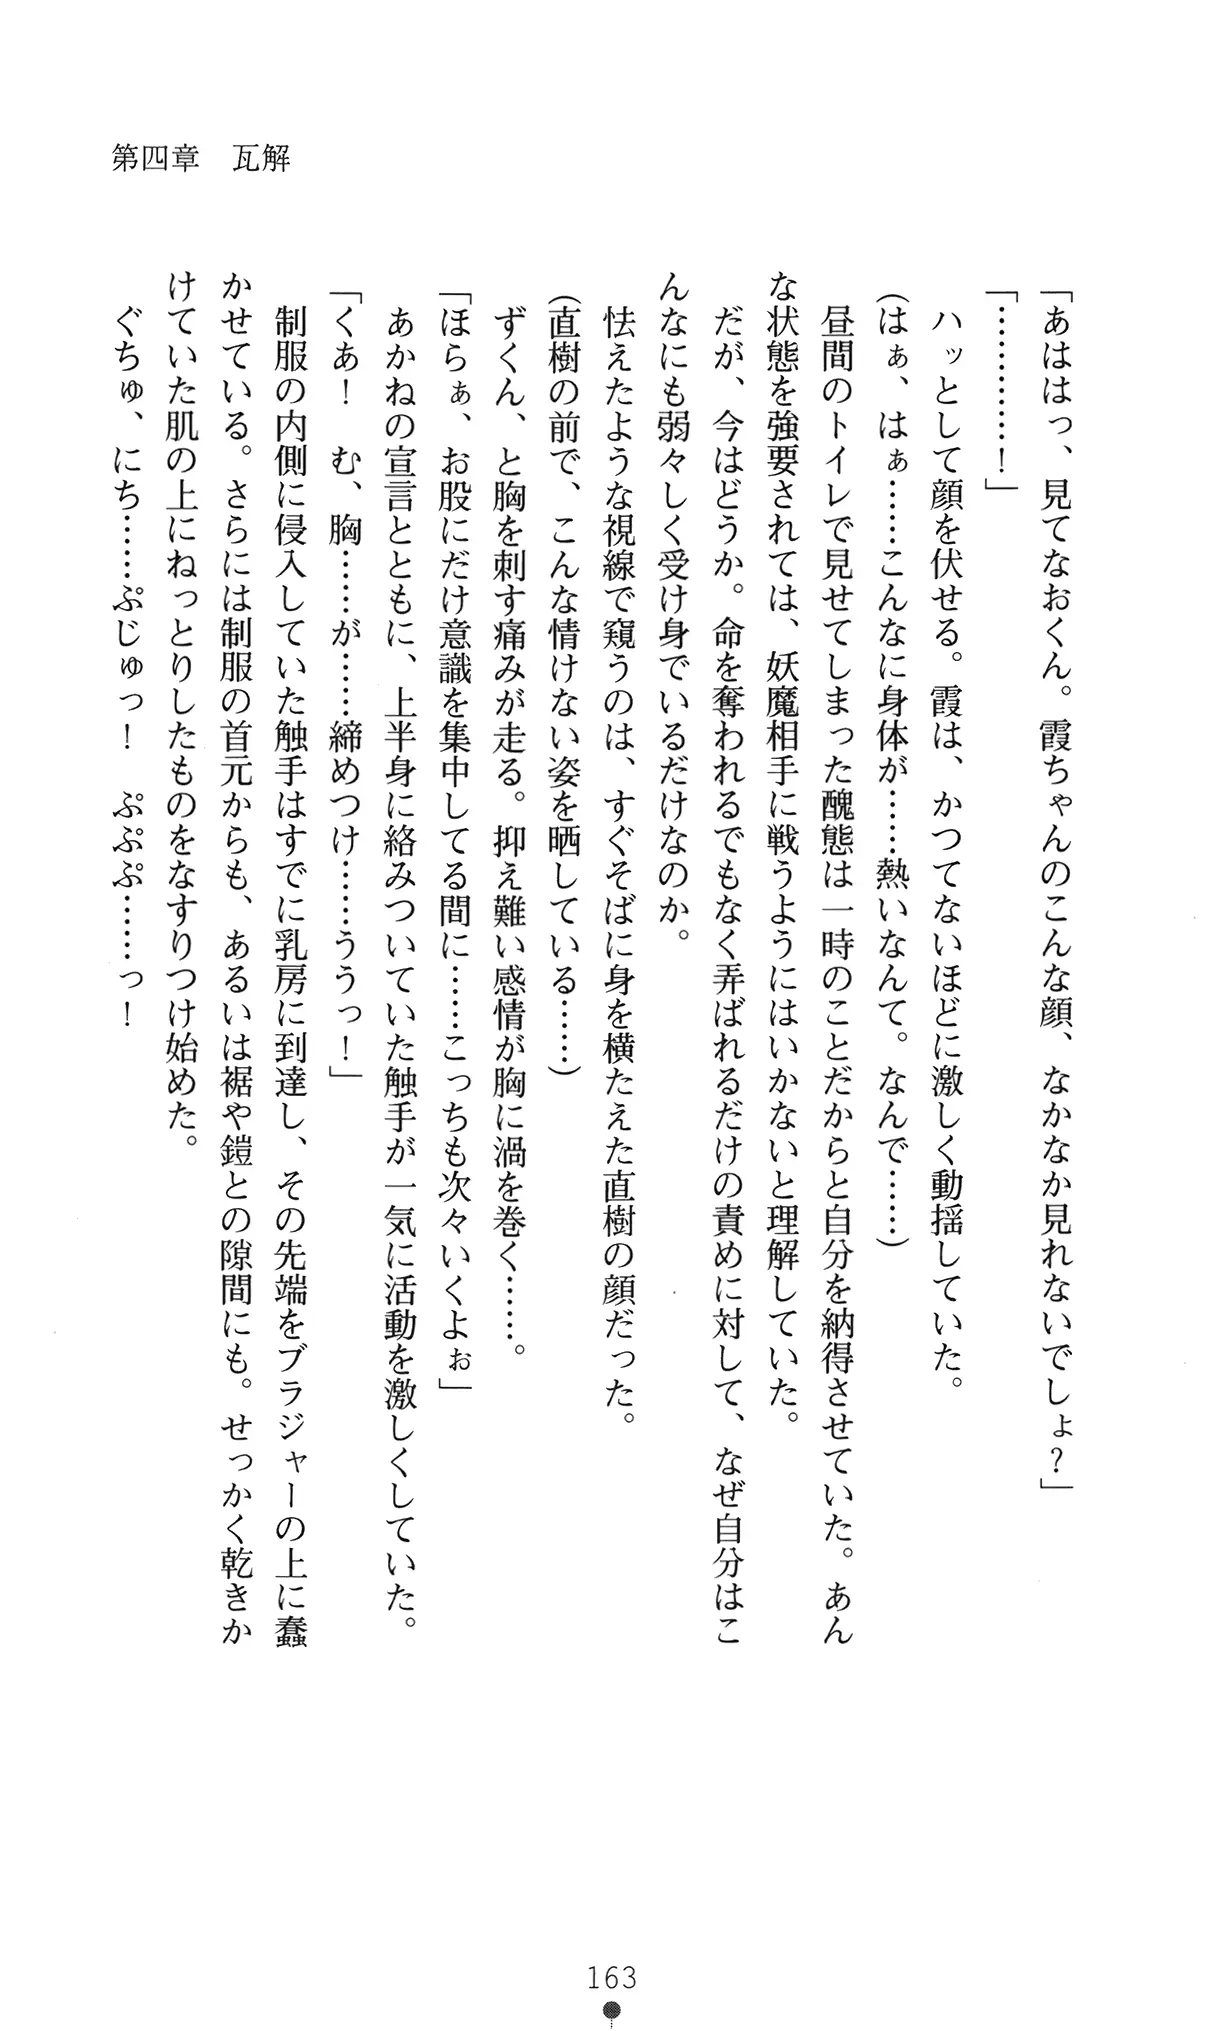 第四章　瓦解
「あははっ、見てなおくん。霞ちゃんのこんな顔、なかなか見れないでしょ？」
「…………！」
　ハッとして顔を伏せる。霞は、かつてないほどに激しく動揺していた。
（はぁ、はぁ……こんなに身体が……熱いなんて。なんで……）
　昼間のトイレで見せてしまった醜態は一時のことだからと自分を納得させていた。あん
な状態を強要されては、妖魔相手に戦うようにはいかないと理解していた。
　だが、今はどうか。命を奪われるでもなく弄ばれるだけの責めに対して、なぜ自分はこ
んなにも弱々しく受け身でいるだけなのか。
　怯えたような視線で窺うのは、すぐそばに身を横たえた直樹の顔だった。
（直樹の前で、こんな情けない姿を晒している……）
　ずくん、と胸を刺す痛みが走る。抑え難い感情が胸に渦を巻く……。
「ほらぁ、お股にだけ意識を集中してる間に……こっちも次々いくよぉ」
　あかねの宣言とともに、上半身に絡みついていた触手が一気に活動を激しくしていた。
「くあ！　む、胸……が……締めつけ……ううっ！」
　制服の内側に侵入していた触手はすでに乳房に到達し、その先端をブラジャーの上に蠢
かせている。さらには制服の首元からも、あるいは裾や鎧との隙間にも。せっかく乾きか
けていた肌の上にねっとりしたものをなすりつけ始めた。
　ぐちゅ、にち……ぷじゅっ！　ぷぷぷ……っ！
163